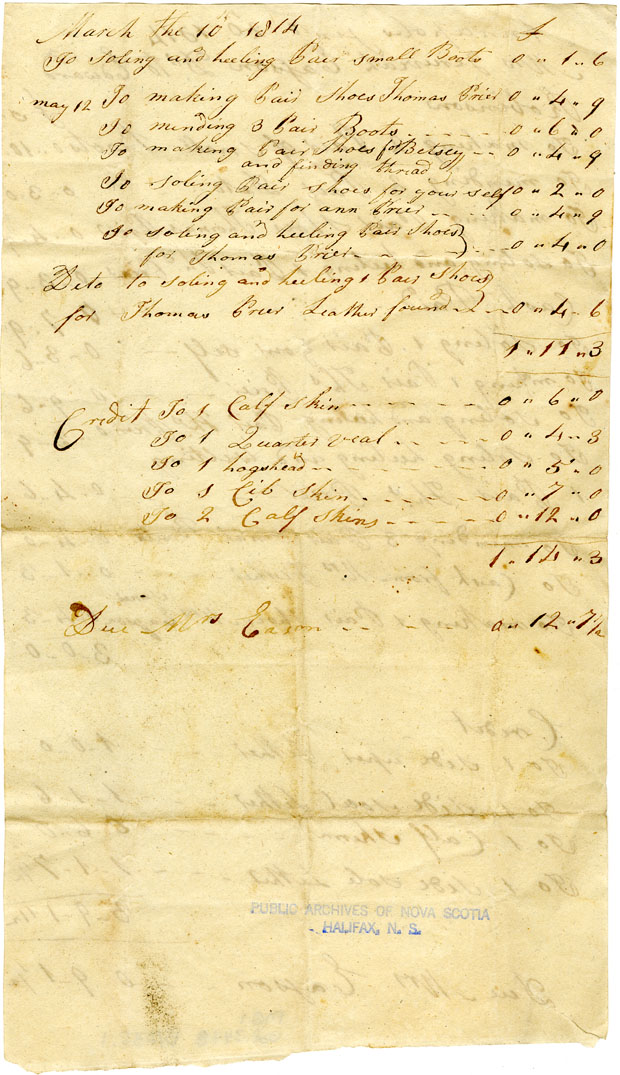 March the 10th 1814 £
To soling and heeling Pair small Boots 0 " 1 " 6
may 12 To making Pair Shoes Thomas Prier 0 " 4 " 9
To minding 3 Pair Boots - - - - - 0 " 6 " 0
To making Pair Shoes for Betsey - - 0 " 4 " 9
and finding thread
To soling Pair shoes for your self 0 " 2 " 0
To making Pair for ann Prier - - - - 0 " 4 " 9
To soling and heeling Pair Shoes
for Thomas Prier - - - - - 0 " 4 " 0
Deto to soling and heeling 1 Pair Shoes
for Thomas Prier Leather found - 0 " 4 - 6
1 " 11 " 3
Credit To 1 Calf skin - - - - - 0 " 6 " 0
To 1 Quarter veal - - - - - 0 " 4 " 3
To 1 hogshead - - - - - 0 " 5 " 0
To 1 Cib Skin - - - - - 0 " 7 " 0
To 2 Calf skins - - - - - 0 " 12 " 0
1 " 14 " 3
Due Mrs Eason - - - 0 " 12 " 7 1/2
PUBLIC ARCHIVES OF NOVA SCOTIA
HALIFAX, N. S.